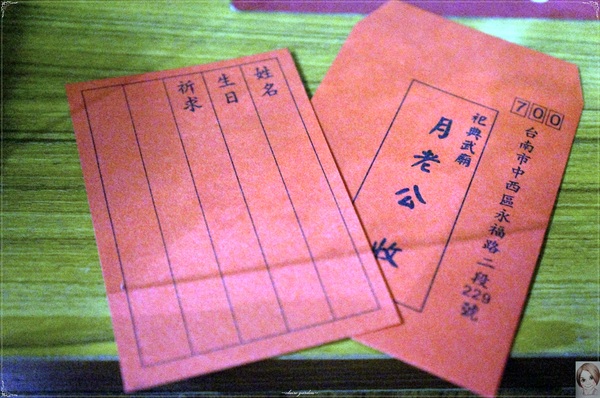 姓名
生日
祈求
700
台南市中西區永福路二段229號
祀典武廟
月老公 收